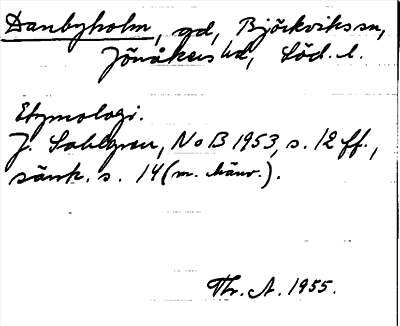 Danbyholm, gd, Björkviks sn,
Jönåkers hd, Söd. l.
Etymologi.
J. Sahlgren, NoB 1953, s. 12 ff.,
särsk. s. 14 (m. hänv.).
Th. A. 1955.